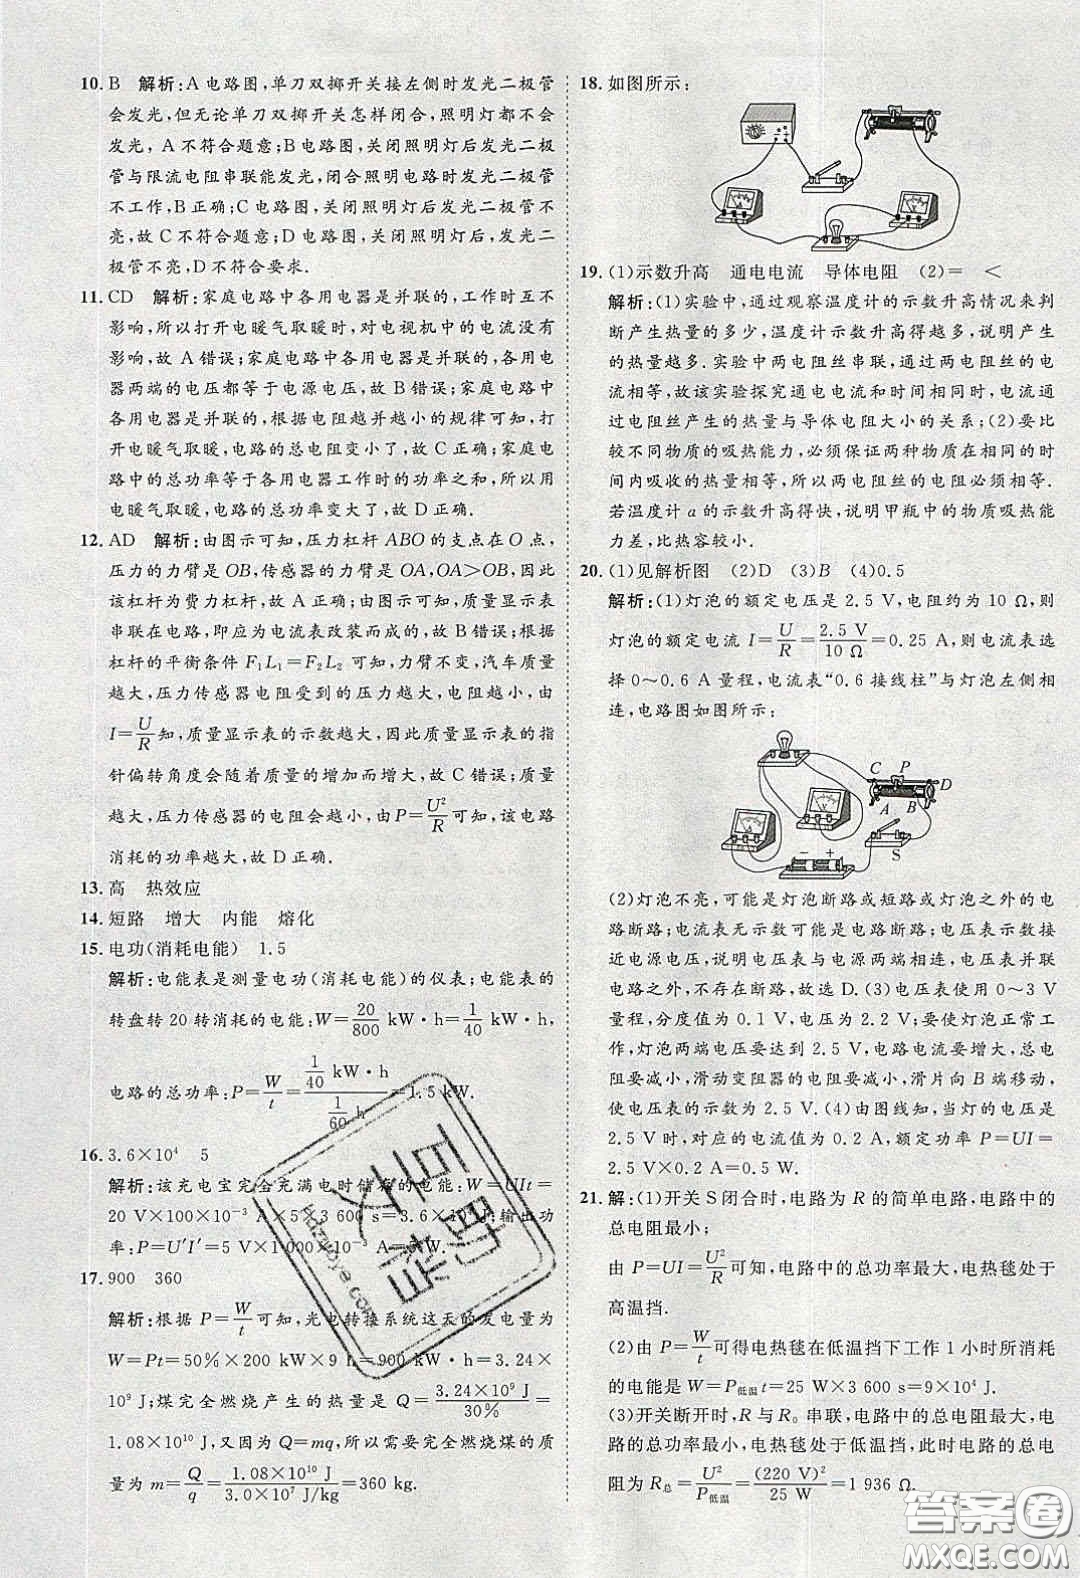 10. B 解析:A 电路图,单刀双掷开关接左侧时发光二极管
会发光,但无论单刀双掷开关怎样闭合,照明灯都不会
发光,A 不符合题意;B 电路图,关闭照明灯后发光二极
管与限流电阻串联能发光,闭合照明电路时发光二极管
不工作,B 正确;C 电路图,关闭照明灯后发光二极管不
亮,故 C 不符合题意;D 电路图,关闭照明灯后,发光二
极管不亮,D 不符合要求.
11. CD 解析:家庭电路中各用电器是并联的,工作时互不
影响,所以打开电暖气取暖时,对电视机中的电流没有
影响,故 A 错误;家庭电路中各用电器是并联的,各用电
器两端的电压都等于电源电压,故 B 错误;家庭电路中
各用电器是并联的,根据电阻越并越小的规律可知,打
开电暖气取暖,电路的总电阻变小了,故 C 正确;家庭电
路中的总功率等于各用电器工作时的功率之和,所以用
电暖气取暖,电路的总功率变大了,故 D 正确.
12. AD 解析:由图示可知,压力杠杆 ABO 的支点在 O 点,
压力的力臂是 OB,传感器的力臂是 OA,OA>OB,因此
该杠杆为费力杠杆,故 A 正确;由图示可知,质量显示表
串联在电路,即应为电流表改装而成的,故 B 错误;根据
杠杆的平衡条件 F₁L₁=F₂L₂ 可知,力臂不变,汽车质量
越大,压力传感器电阻受到的压力越大,电阻越小,由
I=U/R知,质量显示表的示数越大,因此质量显示表的指
针偏转角度会随着质量的增加而增大,故 C 错误;质量
越大,压力传感器的电阻会越小,由P=U²/R可知,该电路
消耗的功率越大,故 D 正确.
13. 高 热效应
14. 短路 增大 内能 熔化
15. 电功(消耗电能) 1.5
解析:电能表是测量电功(消耗电能)的仪表;电能表的
转盘转 20 转消耗的电能:W=20/800 kW·h=1/40 kW·h,
电路的总功率:P=W/t=(1/40 kW·h)/(1/60 h)=1.5 kW.
16. 3.6×10⁴ 5
解析:该充电宝完全充满电时储存的电能:W=UIt=
20 V×100×10⁻³ A×5×3 600 s=3.6×10⁴ J;输出功
率:P=U′I′=5 V×1 000×10⁻³ A=5 W.
17. 900 360
解析:根据 P=W/t可知,光电转换系统这天的发电量为
W=Pt=50%×200 kW×9 h=900 kW·h=3.24×
10⁹ J;煤完全燃烧产生的热量是 Q=3.24×10⁹ J/30%=
1.08×10¹⁰ J,又因为 Q=mq,所以需要完全燃烧煤的质
量为 m=Q/q=1.08×10¹⁰ J/3.0×10⁷ J/kg=360 kg.
18. 如图所示:
19. (1)示数升高 通电电流 导体电阻 (2)= <
解析:(1)实验中,通过观察温度计的示数升高情况来判
断产生热量的多少,温度计示数升高得越多,说明产生
的热量越多.实验中两电阻丝串联,通过两电阻丝的电
流相等,故该实验探究通电电流和时间相同时,电流通
过电阻丝产生的热量与导体电阻大小的关系.(2)要比
较不同物质的吸热能力,必须保证两种物质在相同的时
间内吸收的热量相等,所以两电阻丝的电阻必须相等.
若温度计 a 的示数升高得快,说明甲瓶中的物质吸热能
力差,比热容较小.
20. (1)见解析图 (2)D (3)B (4)0.5
解析:(1)灯泡的额定电压是 2.5 V,电阻约为 10 Ω,则
灯泡的额定电流 I=U/R=2.5 V/10 Ω=0.25 A,则电流表选
择 0~0.6 A 量程,电流表“0.6 接线柱”与灯泡左侧相
连,电路图如图所示:
C P D
A B
− + S
(2)灯泡不亮,可能是灯泡断路或短路或灯泡之外的电
路断路;电流表无示数可能是电路断路;电压表示数接
近电源电压,说明电压表与电源两端相连,电压表并联
电路之外不存在断路,故选 D.(3)电压表使用 0~3 V
量程,分度值为 0.1 V,电压为 2.2 V;要使灯泡正常工
作,灯泡两端电压要达到 2.5 V,电路电流要增大,总电
阻要减小,滑动变阻器的电阻要减小,滑片向 B 端移动,
使电压表的示数为 2.5 V.(4)由图线知,当灯的电压是
2.5 V时,对应的电流值为 0.2 A,额定功率 P=UI=
2.5 V×0.2 A=0.5 W.
21. 解:(1)开关 S 闭合时,电路为 R 的简单电路,电路中的
总电阻最小;
由 P=UI=U²/R可知,电路中的总功率最大,电热毯处于
高温挡.
(2)由 P=W/t可得电热毯在低温挡下工作 1 小时所消耗
的电能是 W=P低温t=25 W×3 600 s=9×10⁴ J.
(3)开关断开时,R 与 R₀ 串联,电路中的总电阻最大,电
路的总功率最小,电热毯处于低温挡,此时电路的总电
阻为 R总=U²/P低温=(220 V)²/25 W=1 936 Ω.
答案圈
MXQE.COM